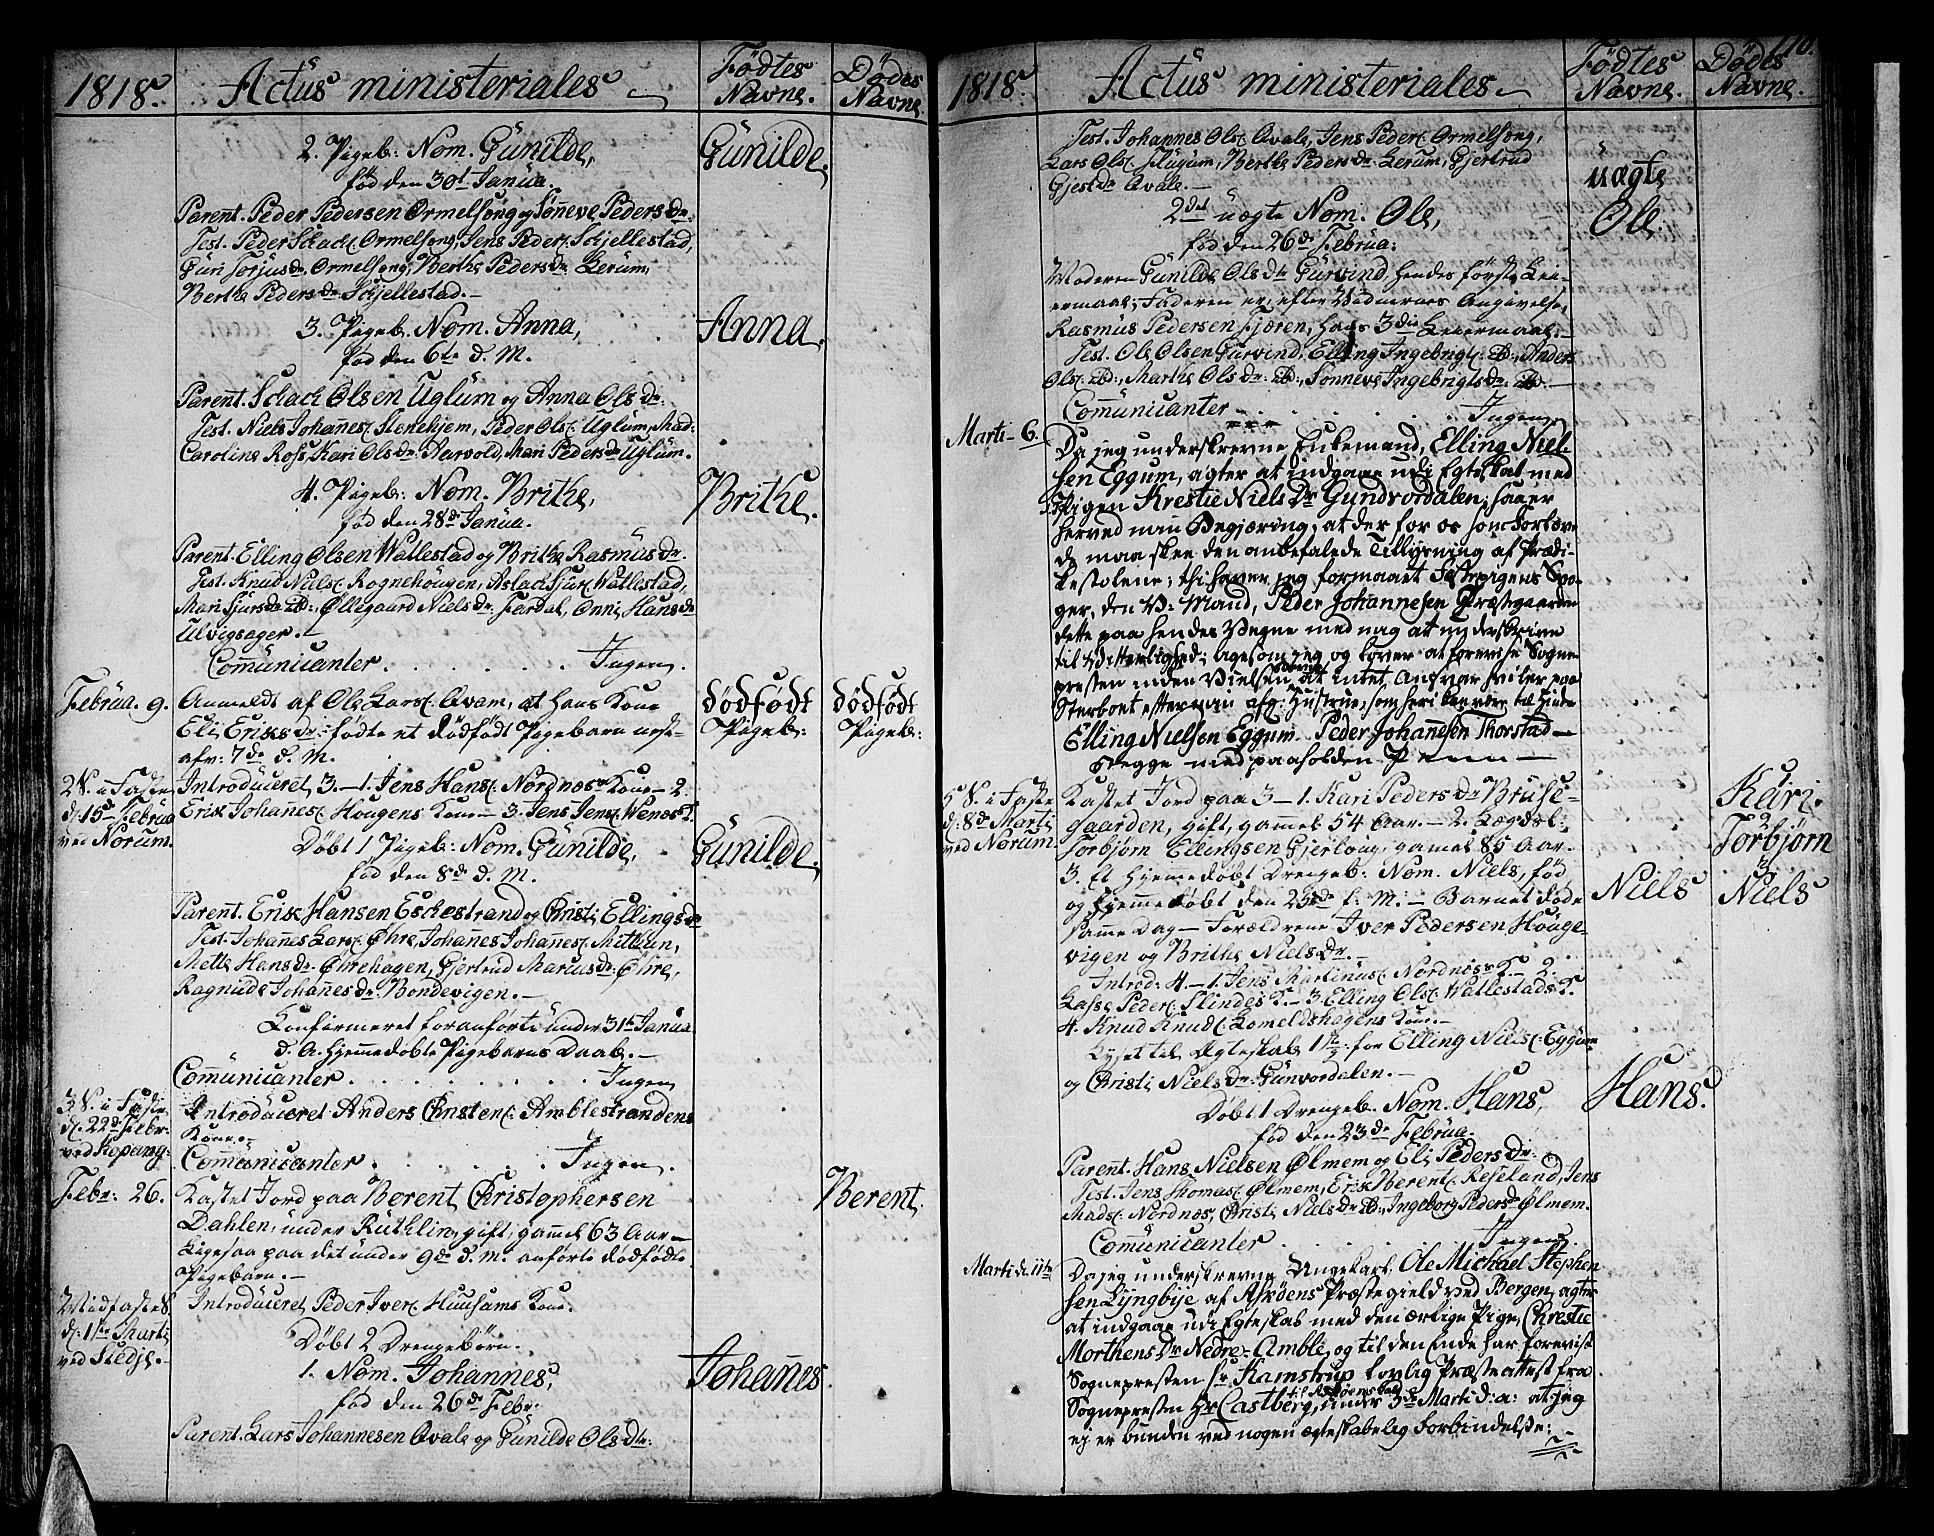 1818.
Actus ministeriales
Fødtes Navne.
Døde Navne.
2. Pigeb: Nom. Gunilde,
Gunilde,
fød den 30t Janua.
Parent. Peder Pedersen Ormelsong og Sønneve Pedersdr.
Test. Peder Schacks. Ormelsong, Jens Peders. Schjellestad,
Guri Torjusdr. Ormelsong, Berthe Pedersdr. Lerum,
Berthe Pedersdr. Schjellestad.
3. Pigeb. Nom. Anna,
Anna,
fød den 6te d. M.
Parent. Schack Olsen Uglum og Anna Olsdr.
Test. Niels Johannes. Stenehjem, Peder Ols. Uglum, Mad:
Caroline Ross, Kari Olsdr. Navold, Mari Pedersdr Uglum.
4. Pigeb: Nom. Brithe,
Brithe.
fød den 28de Janua.
Parent. Elling Olsen Wallestad og Brithe Rasmusdr.
Test. Knud Niels. Rognehougen, Aslack Sjurs. Wallestad,
Mari Sjursdr ib:, Øllegaard Nielsdr. Færdal, Onni Hansdr
Ulvigsager.
Communicanter . . . . . . Ingen.
Februa. 9.
Anmeldt af Ole Lars. Qvam, at hans Kone
dødfødt
dødfødt
Eli Ericsdr. fødte et dødfødt Pigebarn
Pigeb:
Pigeb:
7de d. M.
2 S. i Faste
Introduceret 3. – 1. Jens Hans. Nordnæs Kone – 2.
d. 15de Februa
Erik Johannes. Hougens Kone – 3. Jens Jens. Wenæs K.
ved Norum.
Døbt 1 Pigeb: Nom. Gunilde,
Gunilde,
fød den 8de d. M.
Parent. Erik Hansen Eschestrand og Christi Ellingsdr
Test. Johannes Lars. Øhre, Johannes Johannes. Mittun,
Mette Hansdr. Øhrehagen, Gjertrud Mariusdr. Øhre,
Ragnilde Johannesdr. Bondevigen.
Confirmeret foranførte under 31te Janua
d. A. hjemmedøbte Pigebarns Daab.
Communicanter . . . . . . Ingen
3 S. i Faste
Introduceret Anders Christens. Amblestrandens
d. 22de Febr.
Kone.
ved Kopang.
Communicanter . . . . . Ingen.
Febr: 26.
Kastet Jord paa Berent Christophersen
Berent.
Dahlen, under Ruthlin, gift, gammel 63 Aar –
Ligesaa paa det under 9de d. M. anførte dødfødte
Pigebarn.
Midfaste S.
Introduceret Peder Ivers. Huusums Kone.
d. 1ste Marti
Døbt 2 Drengebørn.
ved Stedje.
1. Nom. Johannes,
Johannes
fød den 26de Febr.
Parent. Lars Johannesen Qvale og Gunilde Olsdtr.
1818.
Actus ministeriales
Fødtes Navne.
Dødes Navne.
Test. Johannes Ols. Qvale, Jens Peders. Ormelsong,
Lars Ols. Flugum, Berthe Pedersdr. Lerum, Gjertrud
Gjestdr Qvale.
uægte
2det uægte Nom. Ole,
Ole.
fød den 26de Februa:
Moderen Gunilde Olsdtr Gurvind, hendes første Lei-
ermaal; Faderen er, efter Vidnernes Angivelse,
Rasmus Pedersen Fjæren, hans 3die Leiermaal.
Test. Ole Olsen Gurvind, Elling Ingebrigts. ib:, Anders
Ols. ib:, Marthe Olsdr. ib:, Sønneve Ingebrigtsdr. ib.
Communicanter . . . . . . Ingen
Marti – 6.
Da jeg underskrevne Enkemand, Elling Niel-
sen Eggum, agter at indgaae udi Egteskab med
Pigen Krestie Nielsdr Gundvordalen; saa er
herved min Begjæring, at der for os som Forlove-
de maa skee den anbefalede Tillysning af Prædi-
kestolene; thi haver jeg formaaet Festepigens
den V: Mand, Peder Johannesen Præstegaarden
dette paa hendes Vegne med mig at underskrive
til Vitterlighed; ligesom jeg og lover at forevise Sogne-
præsten inden Vielsen at intet Ansvar hviler paa
Sterboet efter min afg: Hustrue,
Elling Nielsen Eggum. Peder Johannesen Thorstad –
Begge med paaholden Penn –
5 S. i Faste
Kastet Jord paa 3 – 1. Kari Pedersdr Bruse-
Kari.
d. 8de Marti
gaarden, gift, gammel 54 Aar. – 2. Lægdsl:
ved Norum.
Torbjørn Ellingsen Gjerløug, gamel 85 Aar.
Torbjørn
3. et hjemmedøbt Drengeb: Nom. Niels, fød
Niels
Niels
og hjemmedøbt den 25de f. M. – Barnet døde
samme Dag – Forældrene Iver Pedersen Houge-
vigen og Brithe Nielsdr.
Introd: 4. – 1. Jens Martinus. Nordnæs K. – 2.
Lasse Peders. Slindes K. – 3. Elling Ols. Wallestads K.
4. Knud Knuds. Lomeldshagens Kone.
Lyset til Ægteskab 1ste for Elling Niels. Eggum
og Christi Nielsdr. Gunvordalen.
Døbt 1 Drengeb. Nom. Hans,
Hans.
fød den 23de Februa.
Parent. Hans Nielsen Ølmem og Eli Pedersdr.
Test. Jens Thomas. Ølmem, Erik Berent. Reseland, Jens
Mads. Nordnæs, Christi Nielsdr ib:, Ingeborg Pedersdr Ølmem.
Communicanter . . . . . Ingen.
Marti d. 11te
Da jeg underskrevne Ungekarl Ole Michael Stephen
sen Lyngbye af Askøens Præstegield ved Bergen, agter
at indgaae udi Egteskab med den ærlige Pige, Chrestie
Morthensdr Nedre-Amble, og til den Ende har forevist
Sognepræsten hr Kamstrup lovlig Præsteattest fra
Sognepræsten Hr Castberg til Askøens Kald, under 3de Marti d: a: at jeg
ej er bunden ved nogen ægteskabelig Forbindelse: